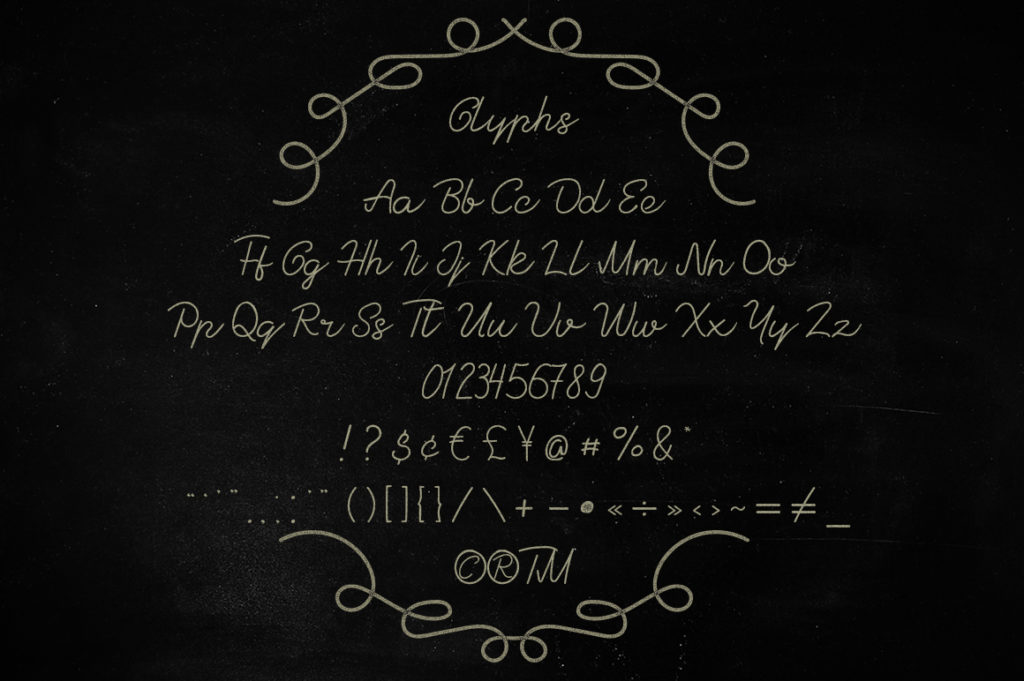 Glyphs
Aa Bb Cc Dd Ee
Ff Gg Hh Ii Jj Kk Ll Mm Nn Oo
Pp Qq Rr Ss Tt Uu Vv Ww Xx Yy Zz
0123456789
! ? $ ¢ € £ ¥ @ # % & *
( ) [ ] { } / \ + − • « ÷ » < > ~ = ≠ _
©®TM